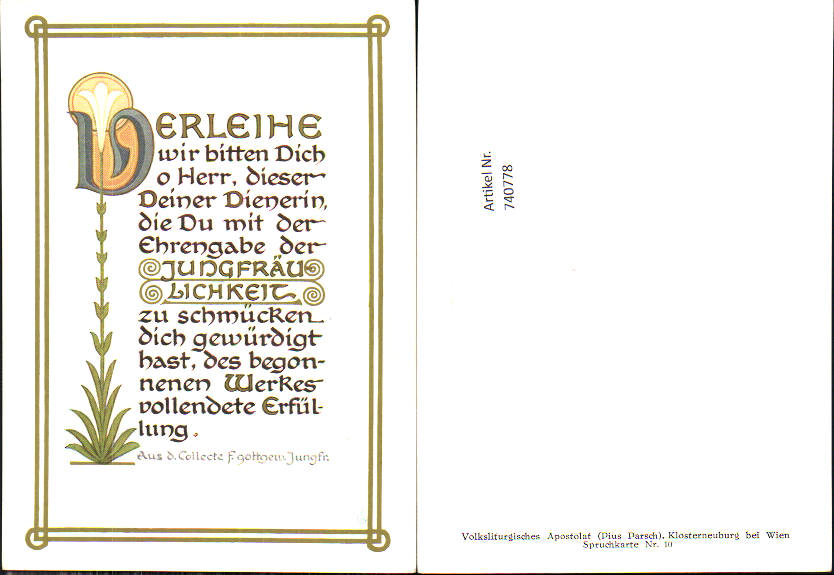 VERLEIHE
wir bitten Dich
o Herr, dieser
Deiner Dienerin,
die Du mit der
Ehrengabe der
JUNGFRÄU
LICHKEIT
zu schmücken
dich gewürdigt
hast, des begon-
nenen Werkes
vollendete Erfül-
lung.
Aus d. Collecte f. gottgew. Jungfr.
Artikel Nr.
740778
Volksliturgisches Apostolat (Pius Parsch), Klosterneuburg bei Wien
Spruchkarte Nr. 10